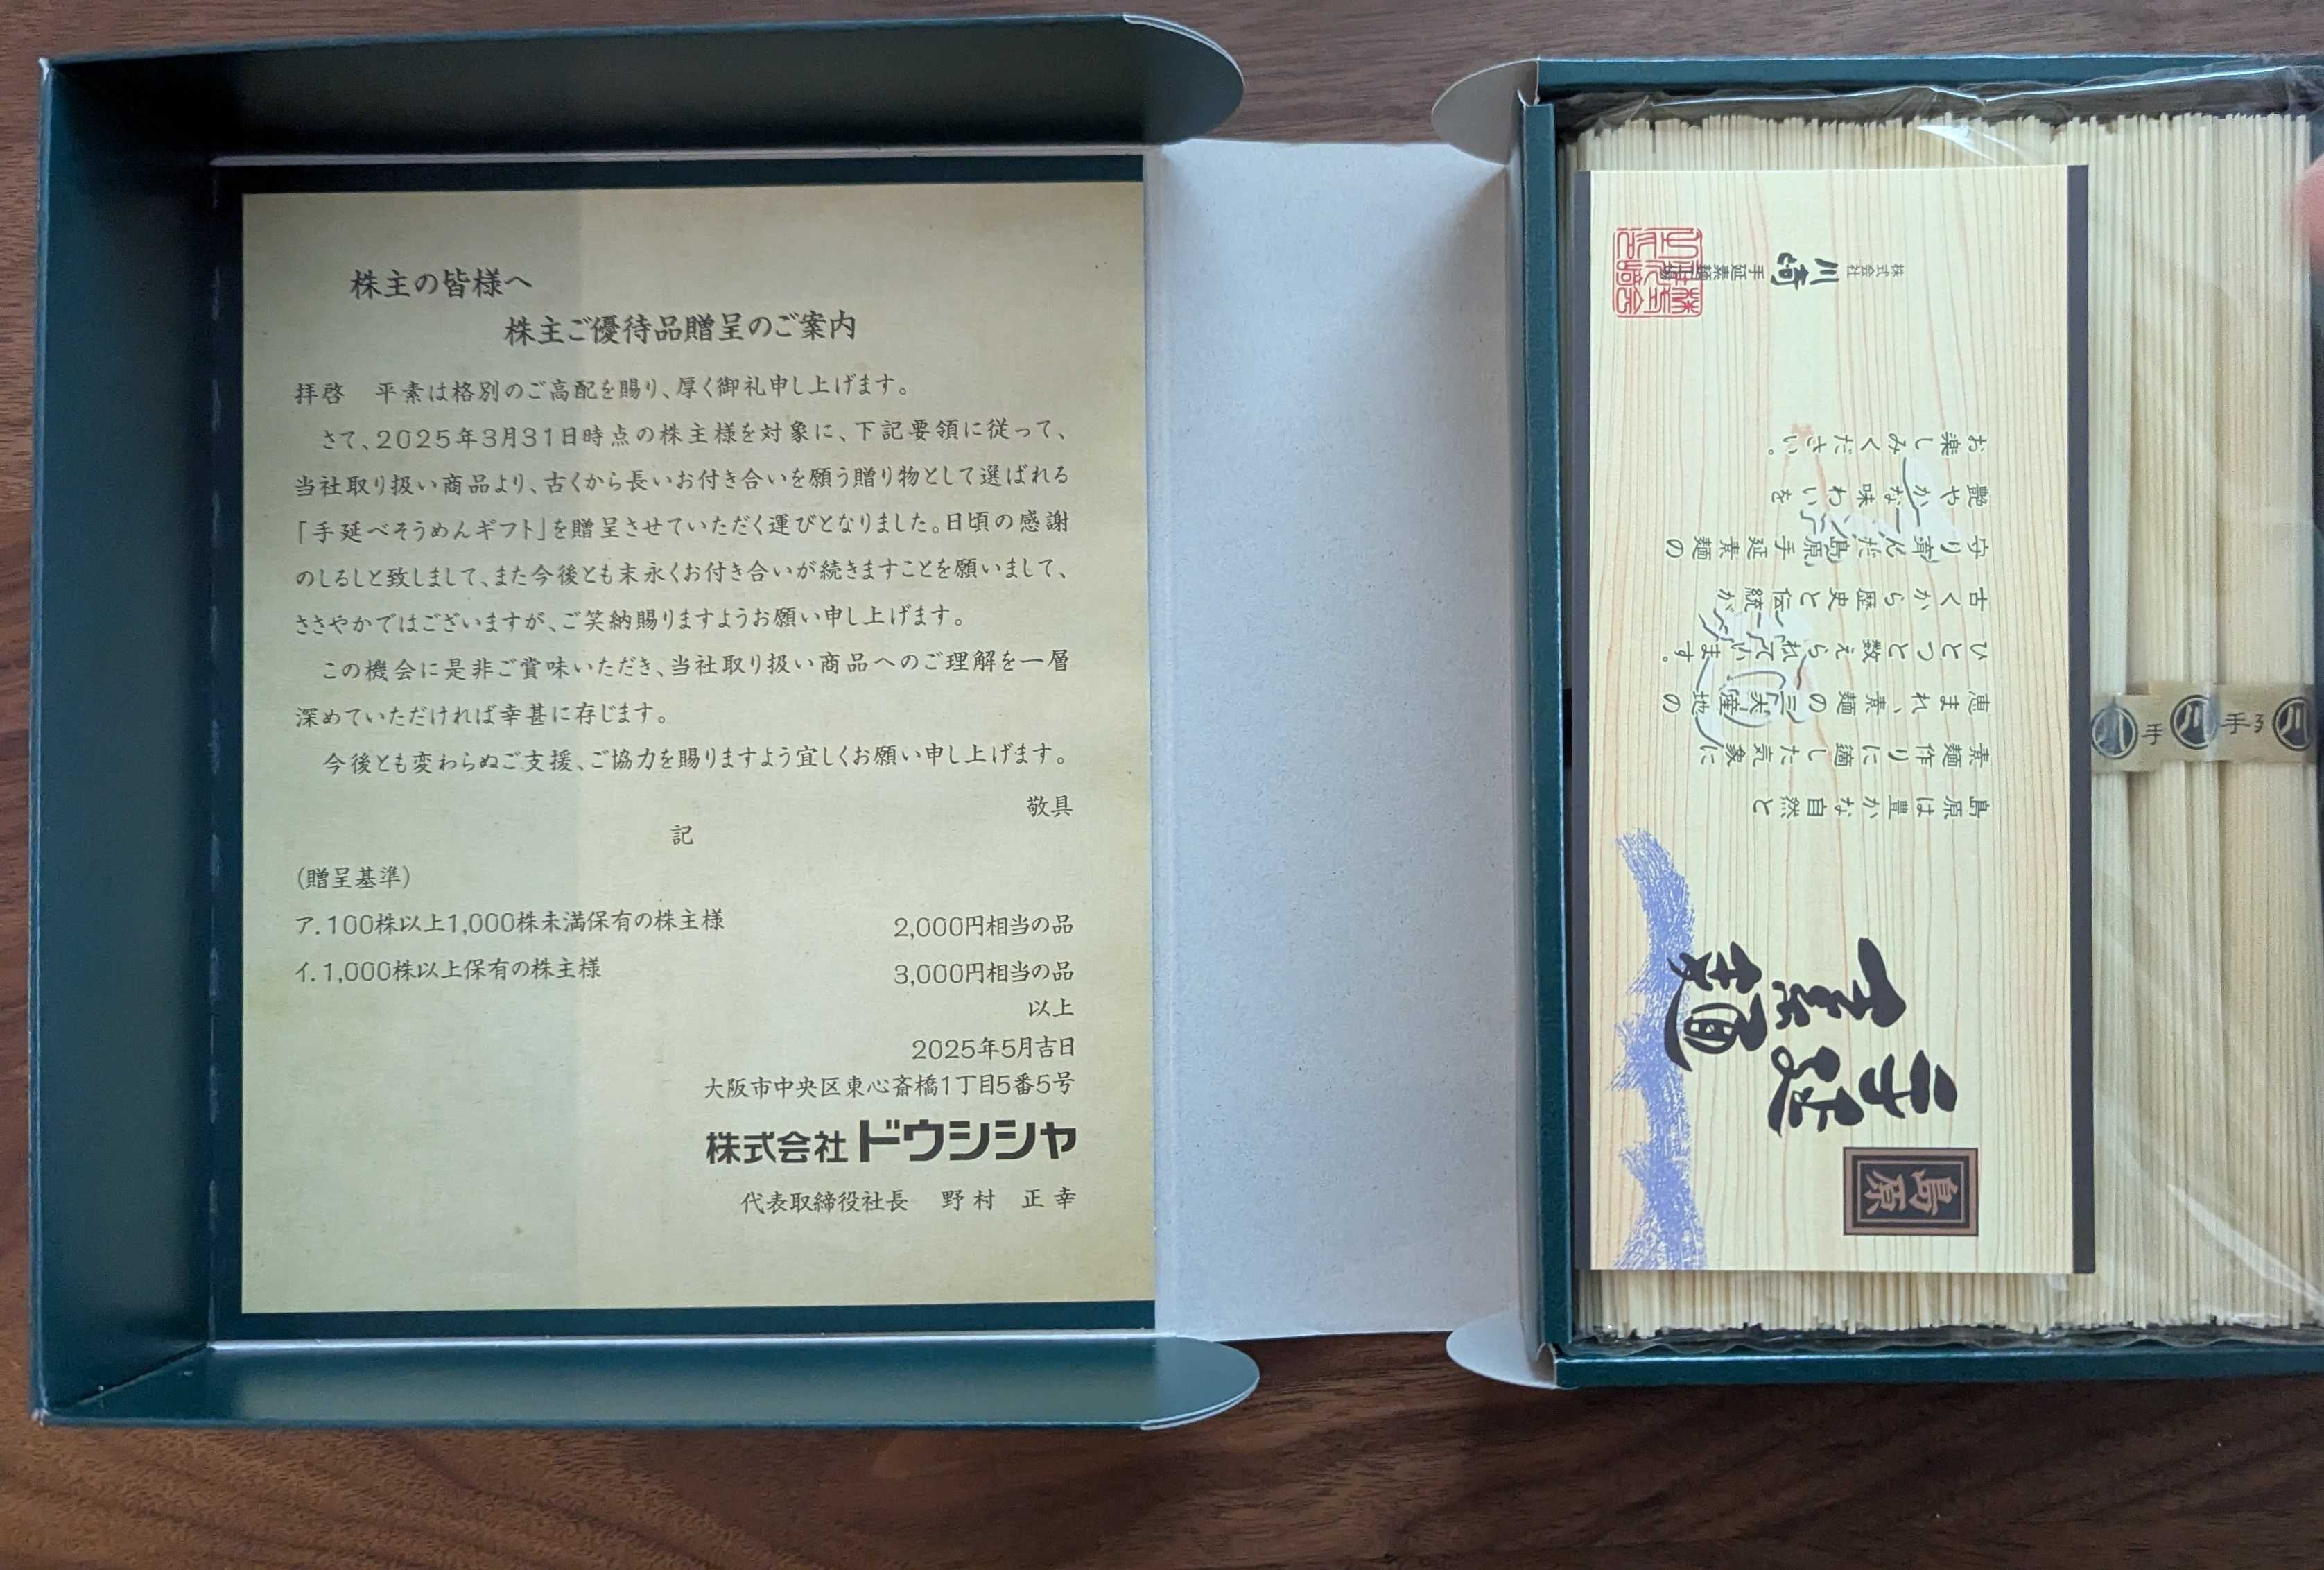 株主の皆様へ
株主ご優待品贈呈のご案内
拝啓　平素は格別のご高配を賜り、厚く御礼申し上げます。
さて、2025年3月31日時点の株主様を対象に、下記要領に従って、
当社取り扱い商品より、古くから長いお付き合いを願う贈り物として選ばれる
「手延べそうめんギフト」を贈呈させていただく運びとなりました。日頃の感謝
のしるしと致しまして、また今後とも末永くお付き合いが続きますことを願いまして、
ささやかではございますが、ご笑納賜りますようお願い申し上げます。
この機会に是非ご賞味いただき、当社取り扱い商品へのご理解を一層
深めていただければ幸甚に存じます。
今後とも変わらぬご支援、ご協力を賜りますよう宜しくお願い申し上げます。
敬具
記
(贈呈基準)
ア.100株以上1,000株未満保有の株主様　2,000円相当の品
イ.1,000株以上保有の株主様　3,000円相当の品
以上
2025年5月吉日
大阪市中央区東心斎橋1丁目5番5号
株式会社ドウシシャ
代表取締役社長　野村　正幸
島原
手延
素麺
島原は豊かな自然と
素麺作りに適した気象に
恵まれ、素麺の三大産地の
ひとつと数えられています。
古くから歴史と伝統が
守り育んだ島原手延素麺の
艶やかな味わいを
お楽しみください。
株式会社
川崎
手延素麺
川 手
川 手
川